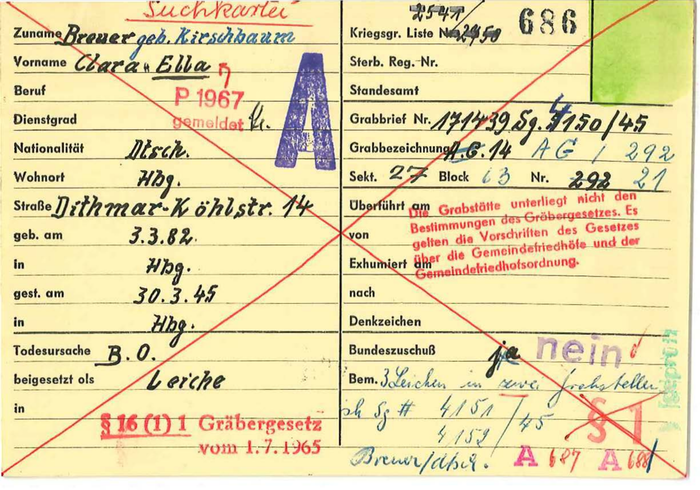 Suchkartei
Zuname Breuer geb. Kirschbaum
Vorname Clara, Ella
Beruf
P 1967
gemeldet
Dienstgrad
A
Nationalität Dtsch.
Wohnort Hbg.
Straße Dithmar-Köhlstr. 14
geb. am 3.3.82.
in Hbg.
gest. am 30.3.45
in Hbg.
Todesursache B.O.
beigesetzt als Leiche
in
§ 16 (1) 1 Gräbergesetz
vom 1.7.1965
2541
Kriegsgr. Liste Nr. 2450
686
Sterb. Reg. Nr.
Standesamt
Grabbrief Nr. 171439 Sg. 4150/45
Grabbezeichnung A.G. 14 AG / 292
Sekt. 27 Block 13 Nr. 292 21
Überführt am
Die Grabstätte unterliegt nicht den
Bestimmungen des Gräbergesetzes. Es
gelten die Vorschriften des Gesetzes
über die Gemeindefriedhöfe und der
Gemeindefriedhofsordnung.
von
Exhumiert am
nach
Denkzeichen
Bundeszuschuß ja nein
Bem. 3 Leichen in zwei Grabstellen
Sg # 4151 / 45
4152
§ 1
Breuer/
A 687 A 688
geprüft